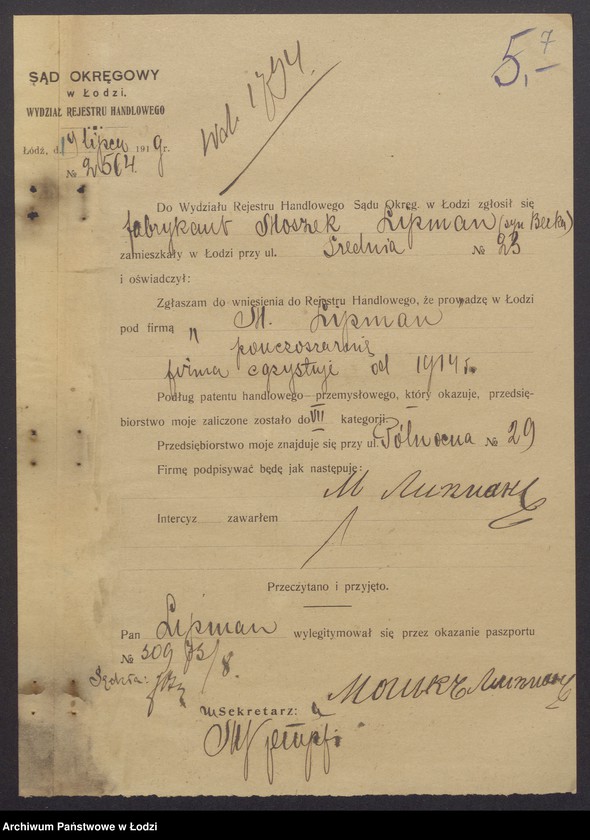 5,- 7
SĄD OKRĘGOWY
w Łodzi.
WYDZIAŁ REJESTRU HANDLOWEGO
Łódź, d. 19 lipca 1919 r.
№ 2564.
1794.
Do Wydziału Rejestru Handlowego Sądu Okręg. w Łodzi zgłosił się
fabrykant Moszek Lipman (syn Berka)
zamieszkały w Łodzi przy ul. Średnia № 23
i oświadczył:
Zgłaszam do wniesienia do Rejestru Handlowego, że prowadzę w Łodzi
pod firmą „M. Lipman"
pończoszarnię
firma egzystuje od 1914 r.
Podług patentu handlowego—przemysłowego, który okazuje, przedsię-
biorstwo moje zaliczone zostało do VII kategorji
Przedsiębiorstwo moje znajduje się przy ul. Północna № 29
Firmę podpisywać będę jak następuje:
М Липман
Intercyz zawarłem
Przeczytano i przyjęto.
Pan Lipman wylegitymował się przez okazanie paszportu
№
Sekretarz:
Липман
Archiwum Państwowe w Łodzi